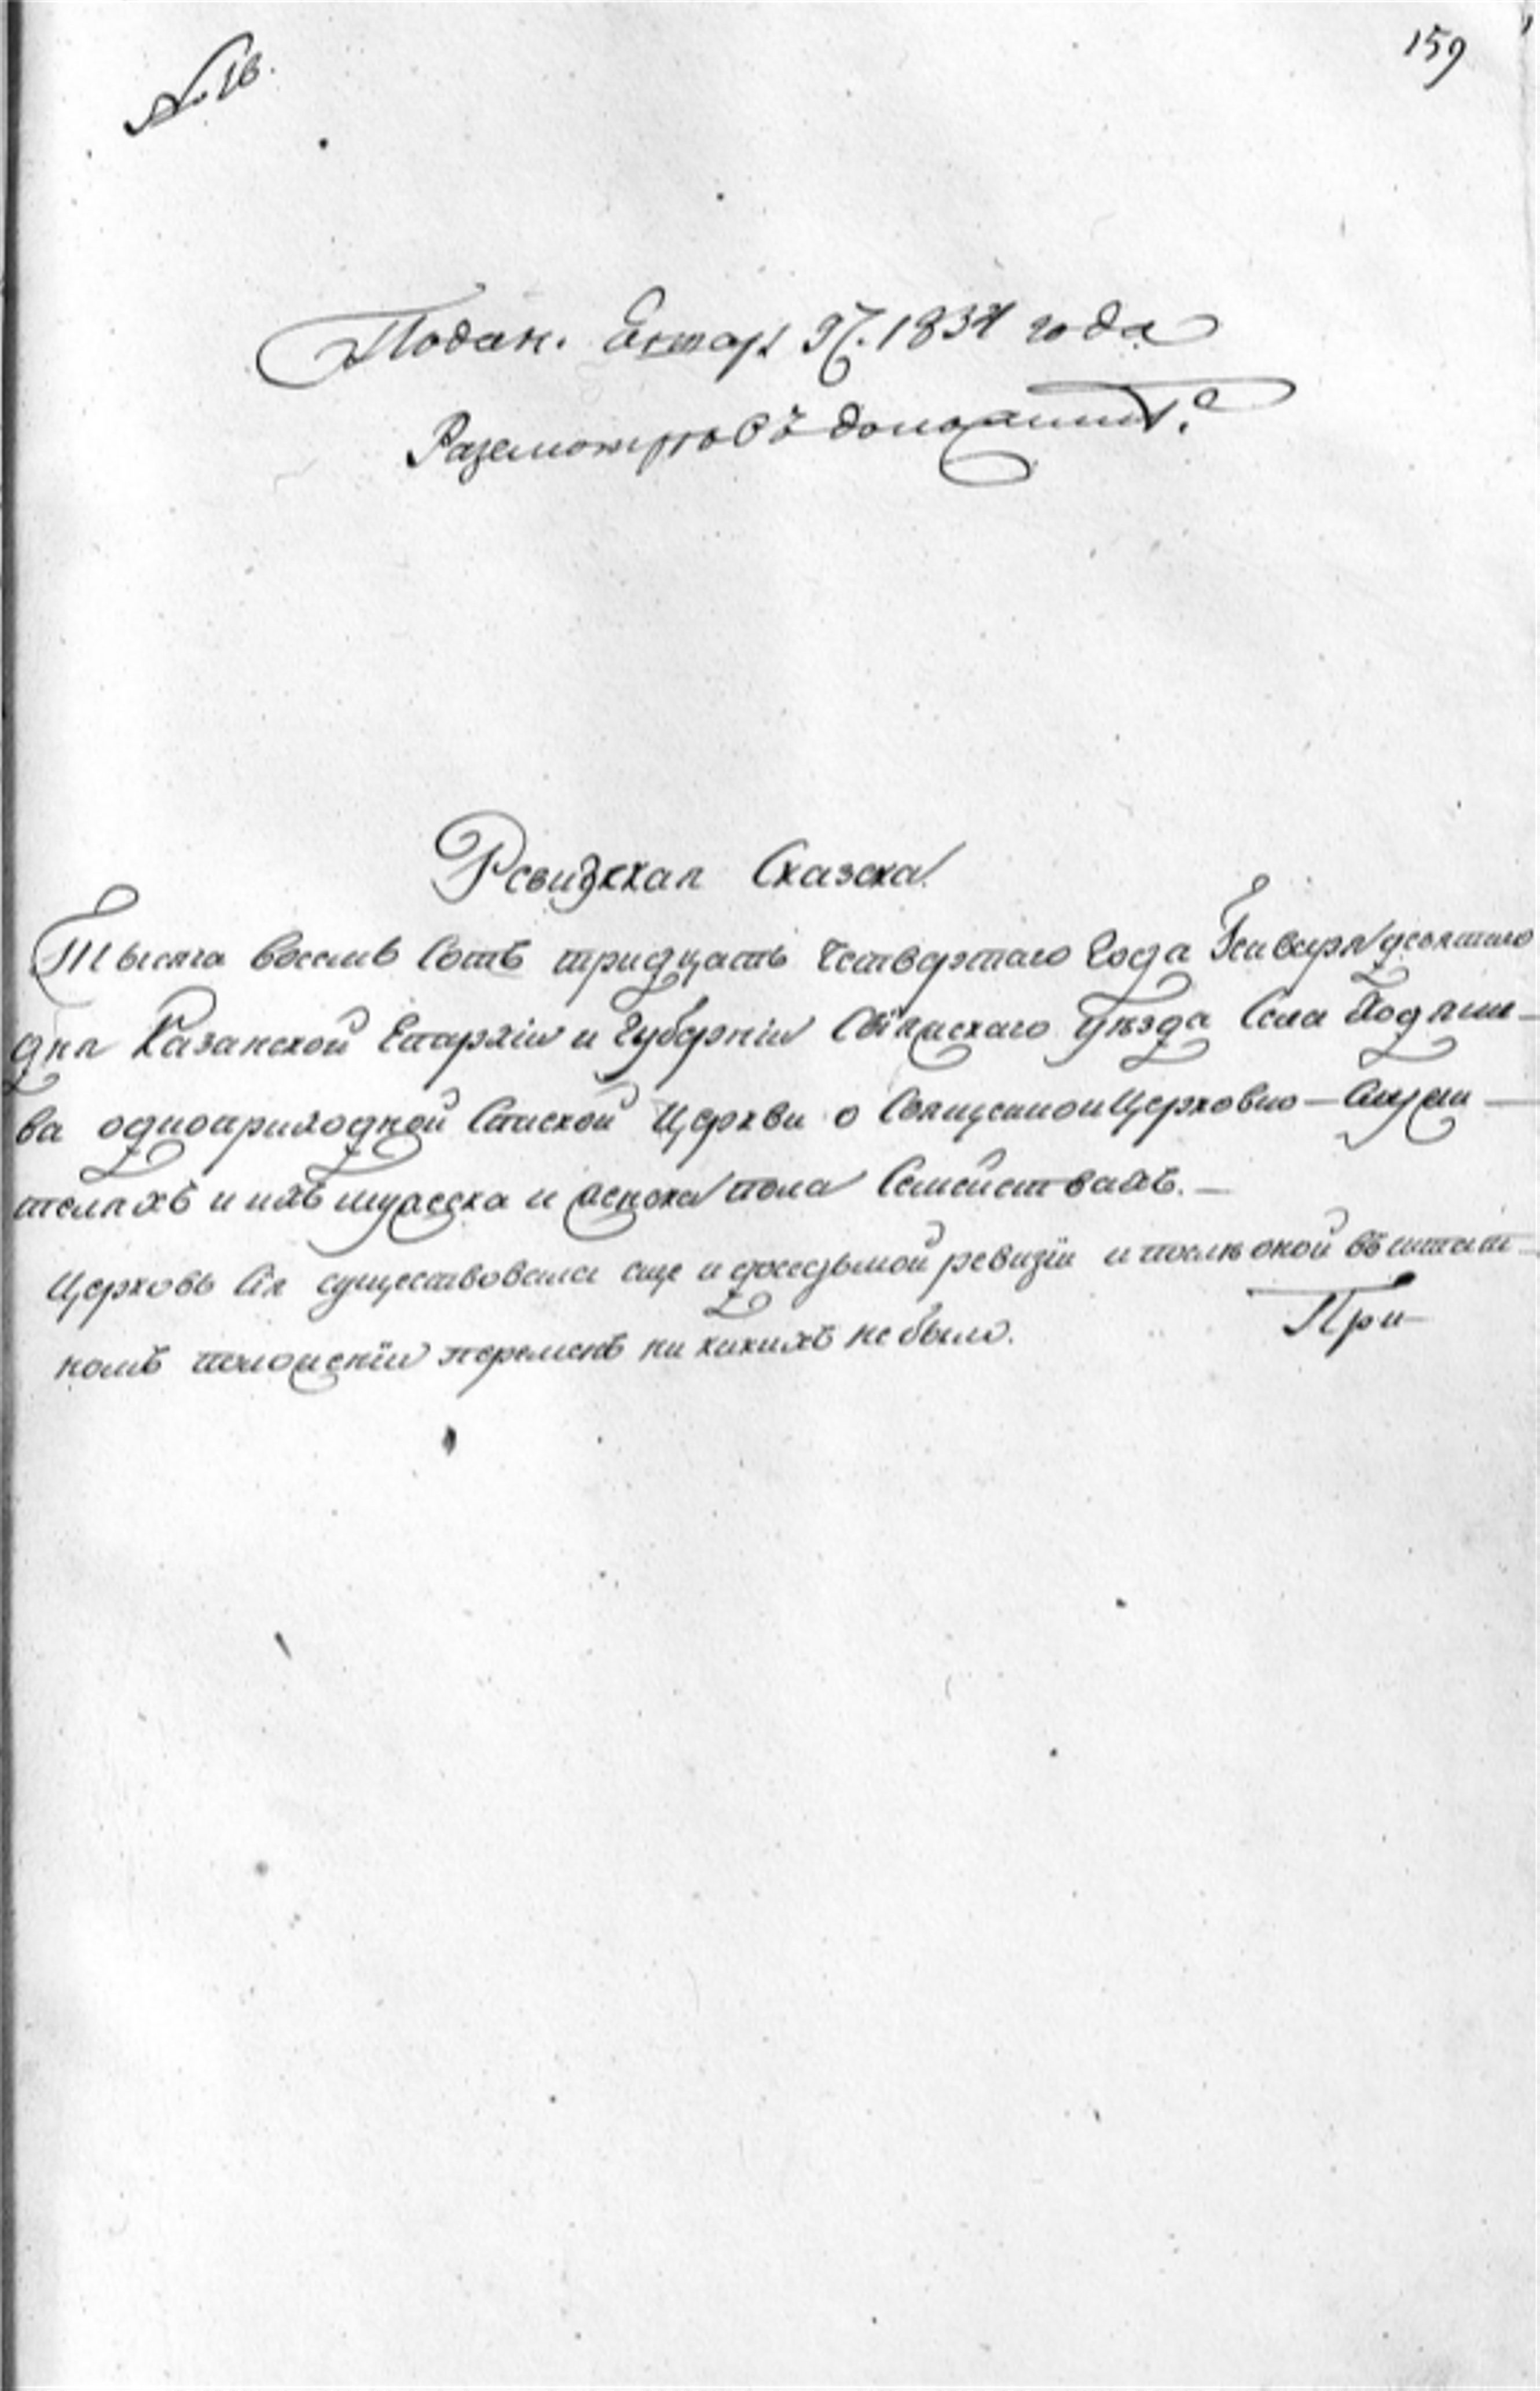 № 16.
159
Подан. Генвар. 1834 года
Разсмотревъ доложить.
Ревизская Сказска
Тысяча восемь Сотъ тридцать Четвертаго Года Генваря десятаго
дня Казанской Епархіи и Губерніи Свіяжскаго Уѣзда Села
ва одноприходной Спаской Церкви о Священно Церковно – Служи –
теляхъ и ихъ мужеска и женска пола Семействахъ. –
Церковь Сія существовала еще и доседьмой ревизіи и послѣ оной въ штат
номъ положеніи перемѣнъ ни какихъ не было.
При–